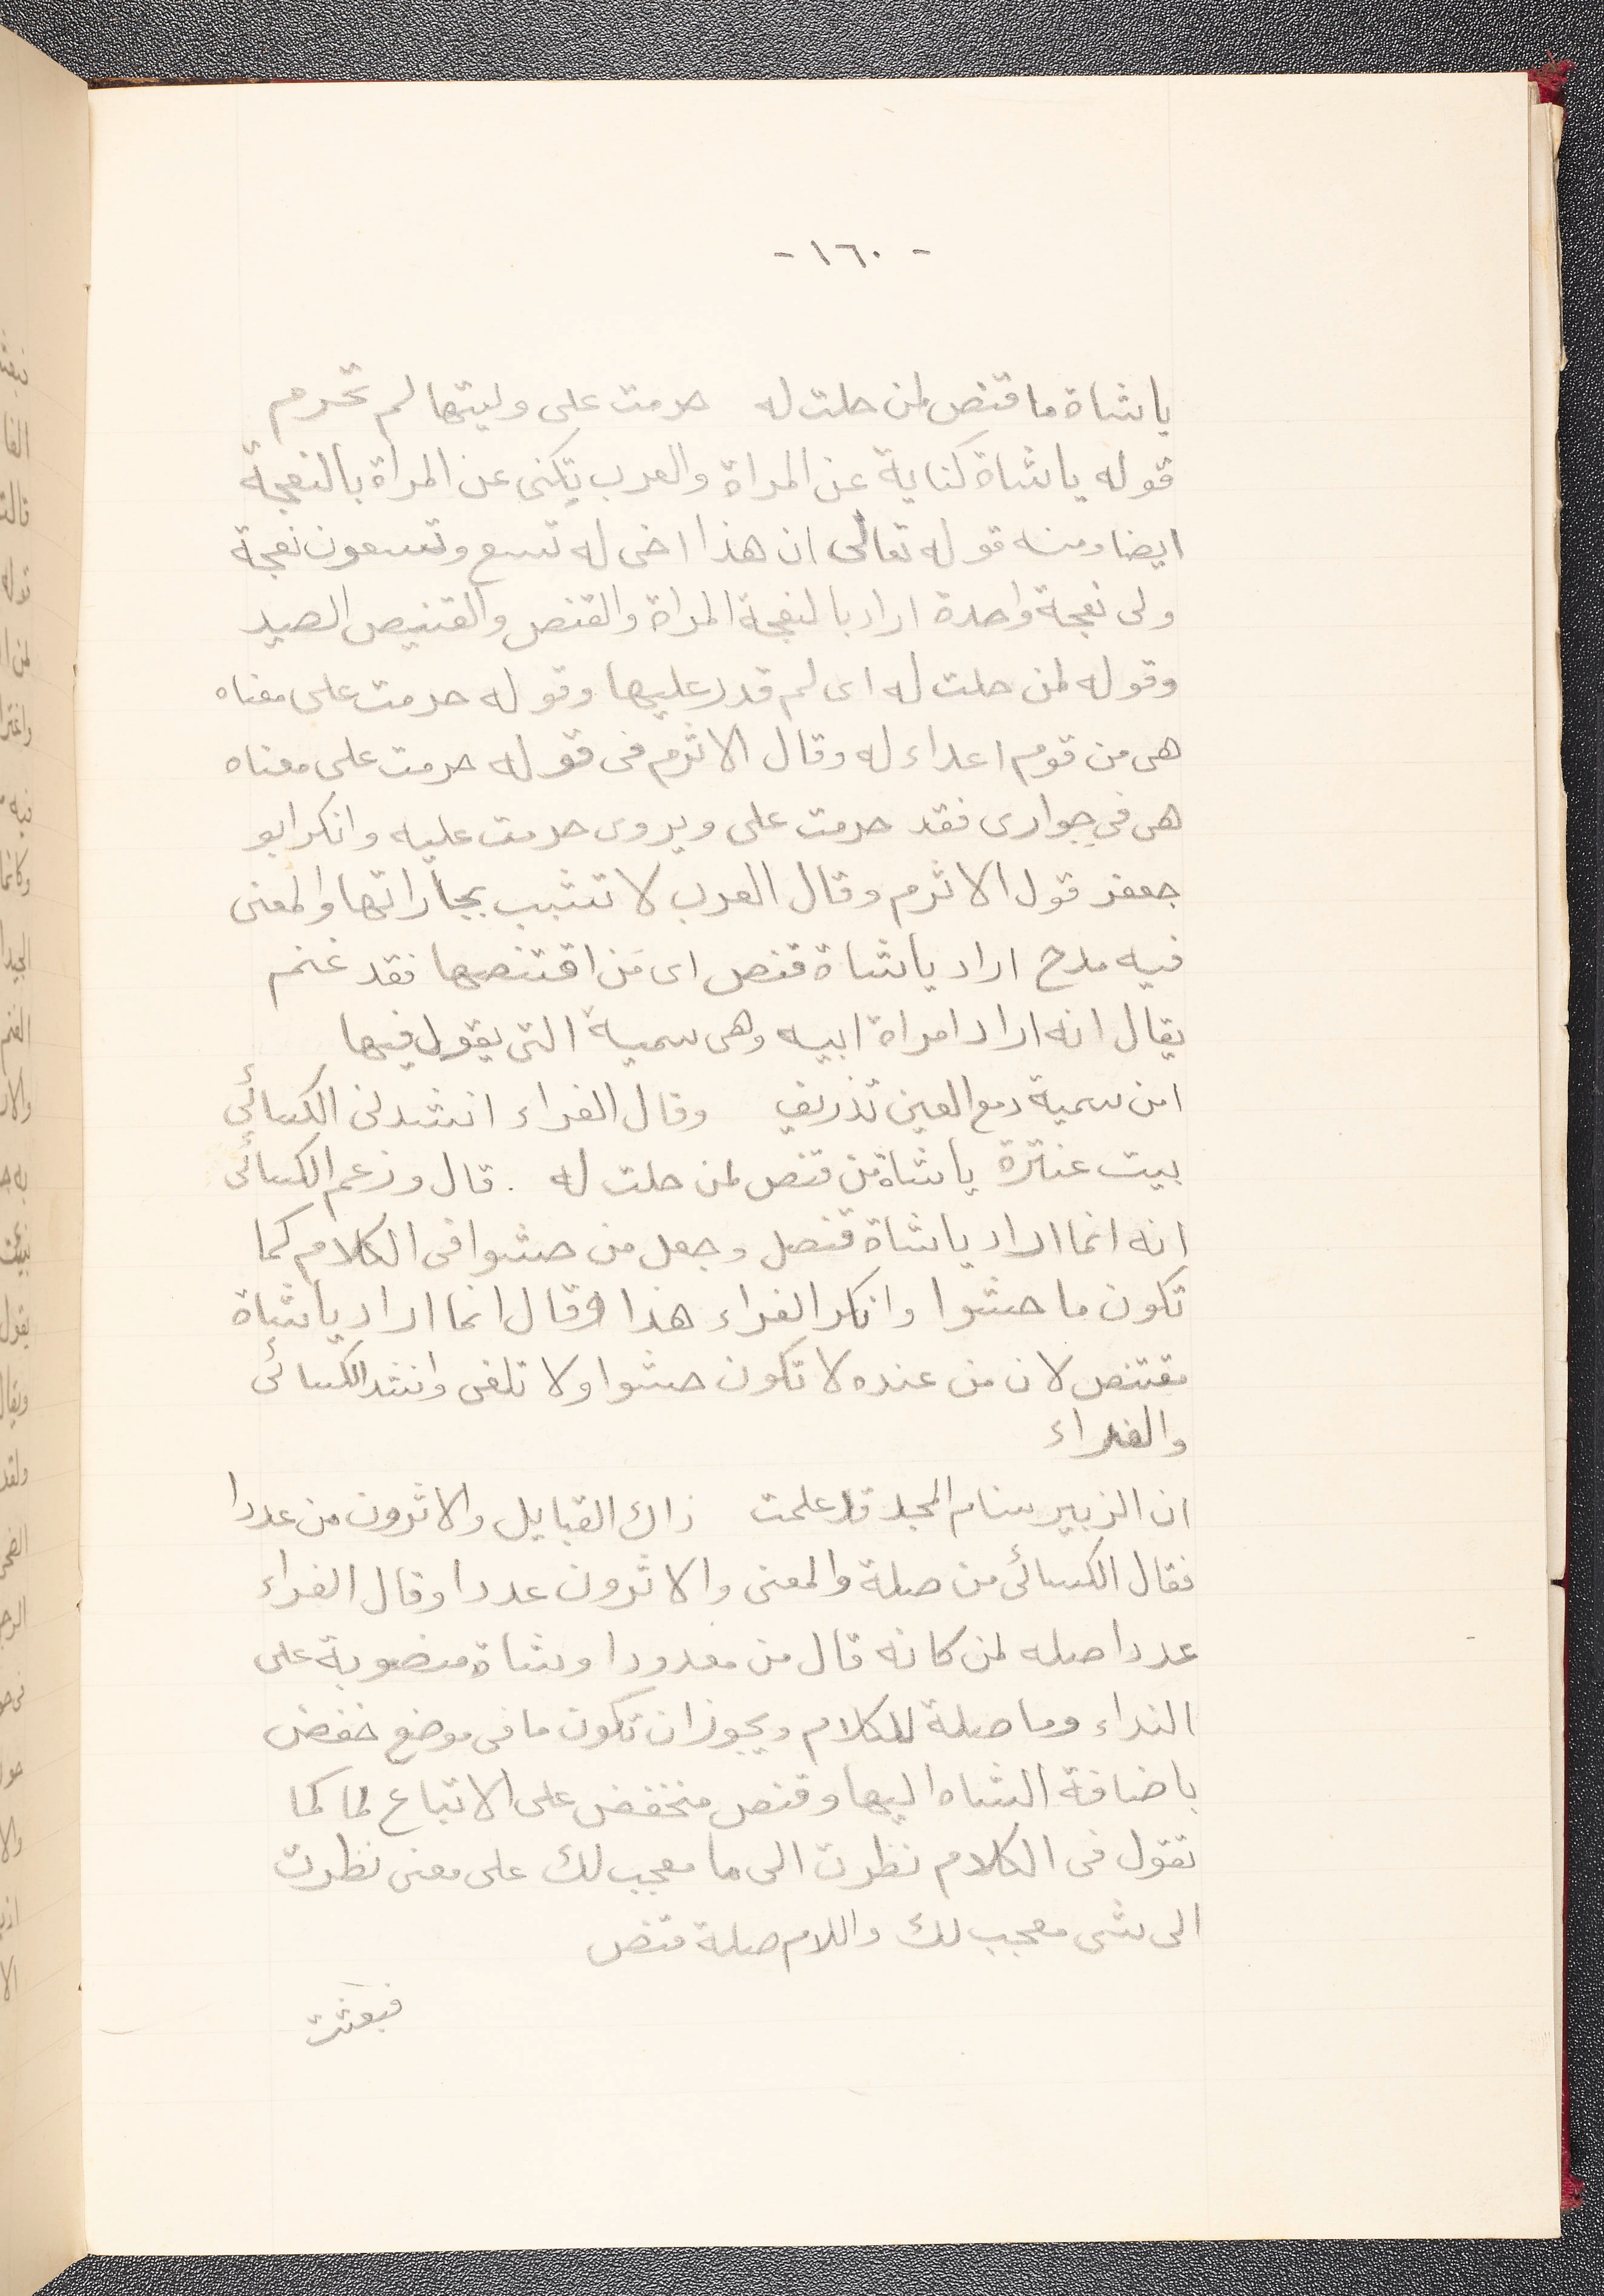 - ١٦٠ -
ياشاة ما قنص لمن حلت له   حرمت على وليتها لم تحرم
قوله ياشاة كناية عن المراة والعرب تكنى عن المراة بالنعجة
ايضا ومنه قوله تعالى ان هذا اخى له تسع وتسعون نعجة
ولى نعجة واحدة اراد بالنعجة المراة والقنص والقنيص الصيد
وقوله لمن حلت له اى لم قدر عليها وقوله حرمت على معناه
هى من قوم اعداء له وقال الاثرم فى قوله حرمت على معناه
هى فى جوارى فقد حرمت على ويروى حرمت عليه وانكر ابو
جعفر قول الاثرم وقال العرب لا تشبب بجاراتها والمعنى
فيه مدح اراد ياشاة قنص اى من اقتنصها فقد غنم
يقال انه اراد امراة ابيه وهى سمية التى يقول فيها
امن سمية دمع العين تذريف   وقال الفراء انشدنى الكسائى
بيت عنترة ياشاة من قنص لمن حلت له . قال وزعم الكسائى
انه انما اراد ياشاة قنص وجعل من حشوا فى الكلام كما
تكون ما حشوا وانكر الفراء هذا وقال انما اراد ياشاة
مقتنص لان من عنده لا تكون حشوا ولا تلغى وانشد الكسائى
والفراء
ان الزبير سنام المجد قد علمت   ذاك القبايل والاثرون من عددا
فقال الكسائى من صلة والمعنى والاثرون عددا وقال الفراء
عددا صله لمن كانه قال من معدودا وشاة منصوبة على
النداء وما صلة للكلام ويجوز ان تكون ما فى موضع خفض
باضافة الشاه اليها وقنص منخفض على الاتباع لما كما
تقول فى الكلام نظرت الى ما معجب لك على معنى نظرت
الى شى معجب لك واللام صلة قنص
فبعثت